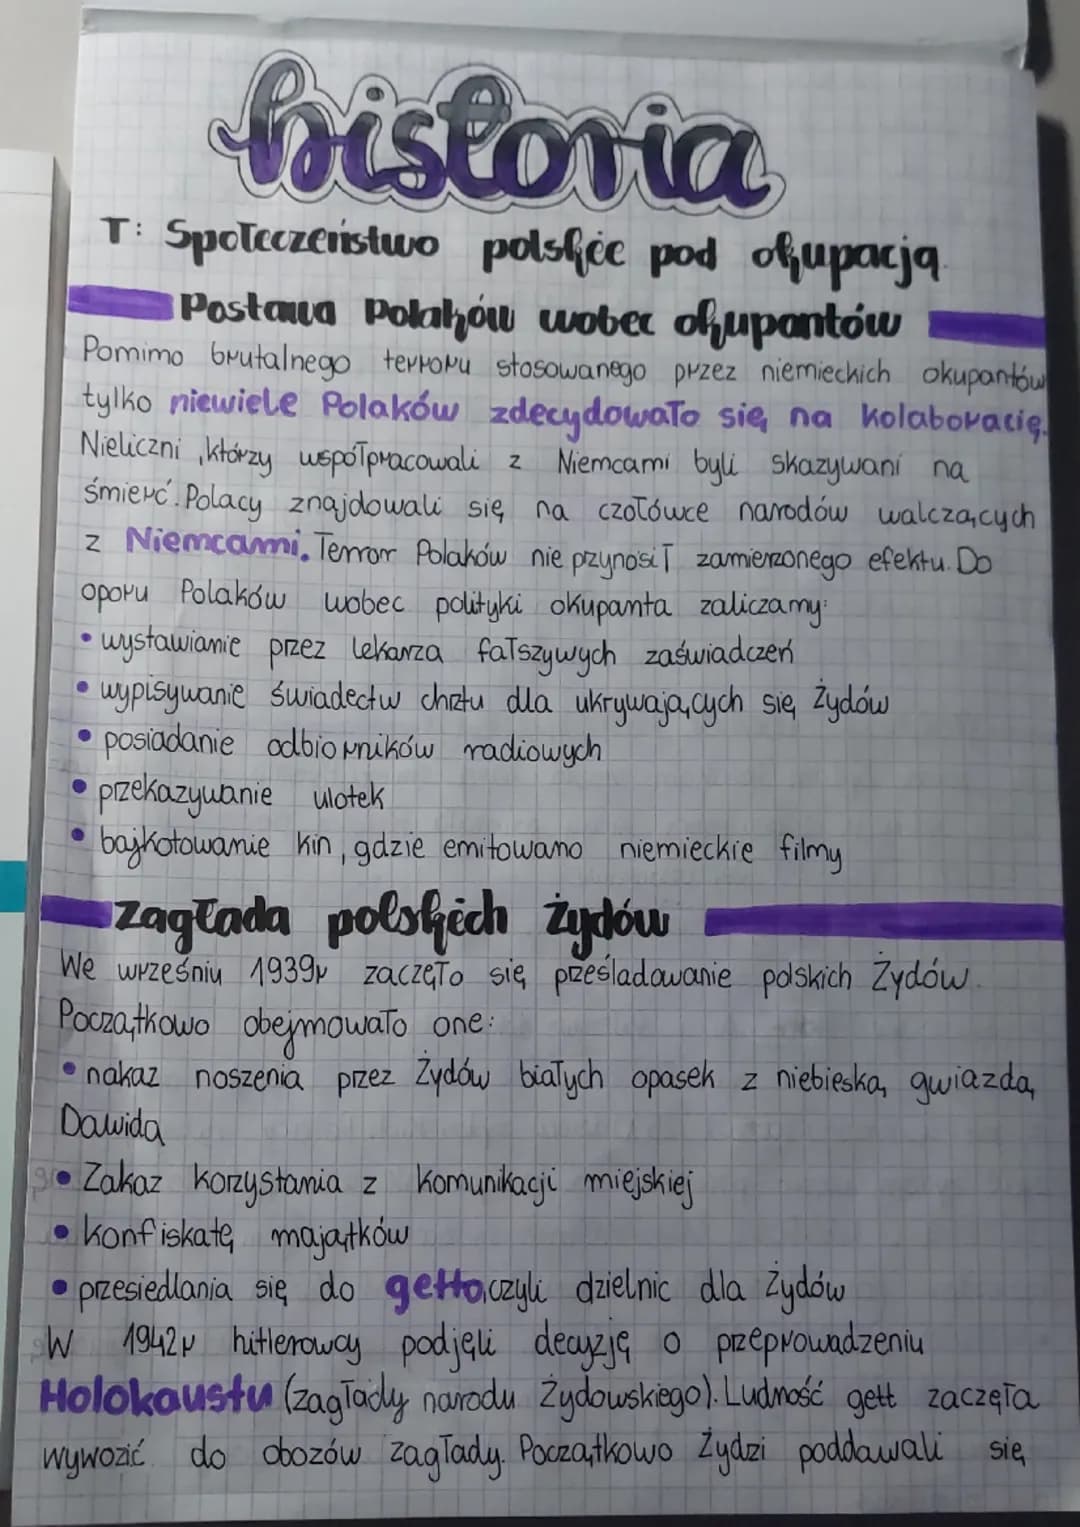 historia
T: Społeczeństwo polskie pod okupacją
Postawa Polaków wobec okupantów
Pomimo brutalnego terroru stosowanego przez niemieckich okupantów
tylko niewiele Polaków zdecydowało się na kolaborację.
Nieliczni, którzy współpracowali z Niemcami byli skazywani na
śmierć. Polacy znajdowali się na czołówce narodów walczących
z Niemcami. Terror Polaków nie przynosił zamierzonego efektu. Do
oporu Polaków wobec polityki okupanta zaliczamy:
• wystawianie przez lekarza fałszywych zaświadczeń
• wypisywanie świadectw chrztu dla ukrywających się Żydów
• posiadanie odbiorników radiowych
• przekazywanie ulotek
• bajkotowanie kin, gdzie emitowano niemieckie filmy
Zagłada polskich żydów
We wrześniu 1939r zaczęło się prześladowanie polskich Żydów.
Początkowo obejmowało one:
• nakaz noszenia przez Żydów białych opasek z niebieską gwiazdą
Dawida
• Zakaz korzystania z komunikacji miejskiej
• konfiskatę majątków
• przesiedlania się do getto, czyli dzielnic dla Żydów
W 1942r hitlerowcy podjęli decyzję o przeprowadzeniu
Holokaustu (zagłady narodu Żydowskiego). Ludność gett zaczęła
wywozić do obozów zagłady. Początkowo Żydzi poddawali się